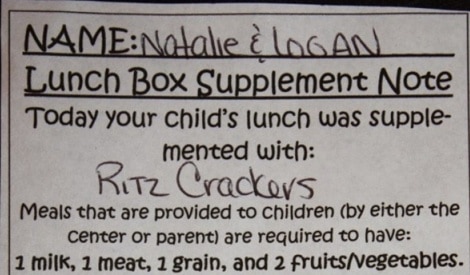 NAME: Natalie & LOGAN
Lunch Box Supplement Note
Today your child's lunch was supple-
mented with:
RITZ Crackers
Meals that are provided to children (by either the
center or parent) are required to have:
1 milk, 1 meat, 1 grain, and 2 fruits/vegetables.